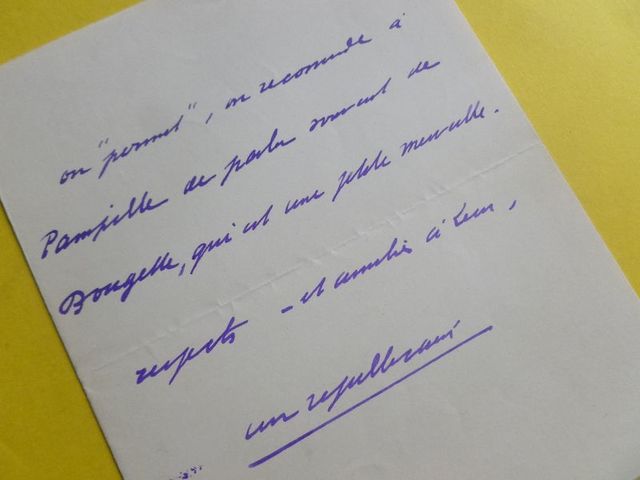 on "permet", on recommande à
Pampille de parler souvent de
Bougette, qui est une petite merveille.
respects - et amitiés à tous,
un républicain